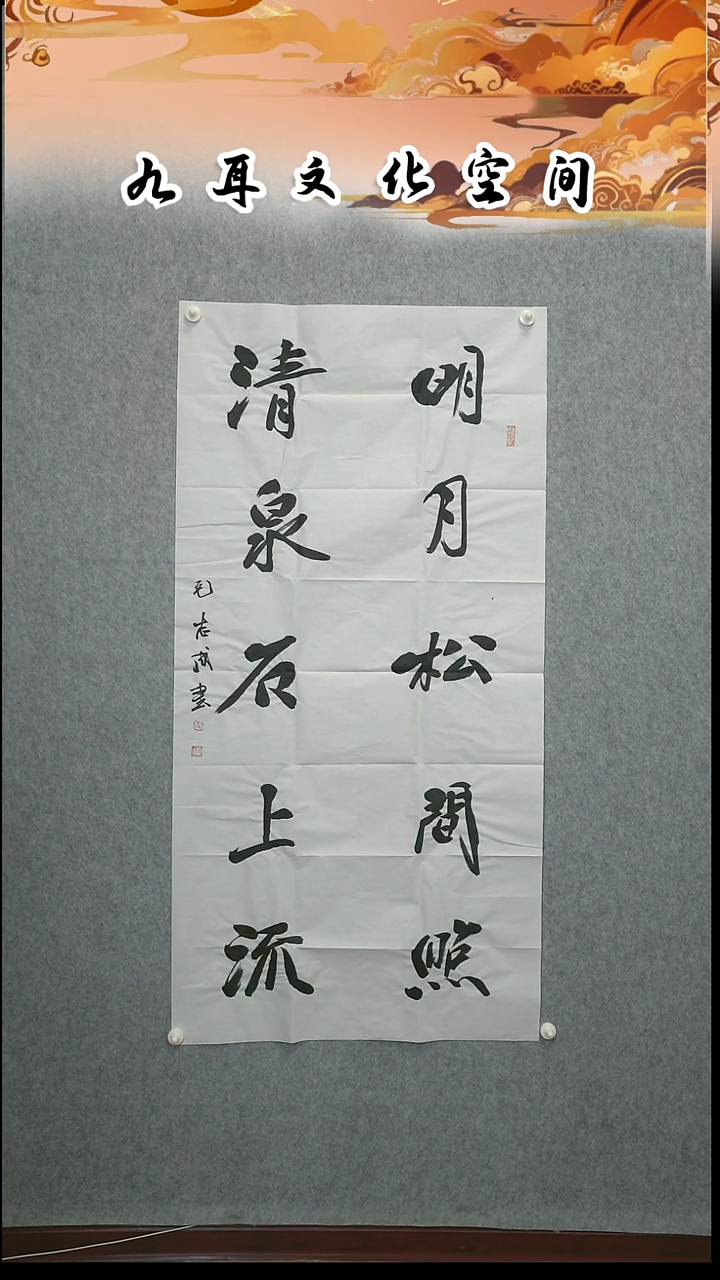 九耳文化空间
明月松間照
清泉石上流
毛志成書